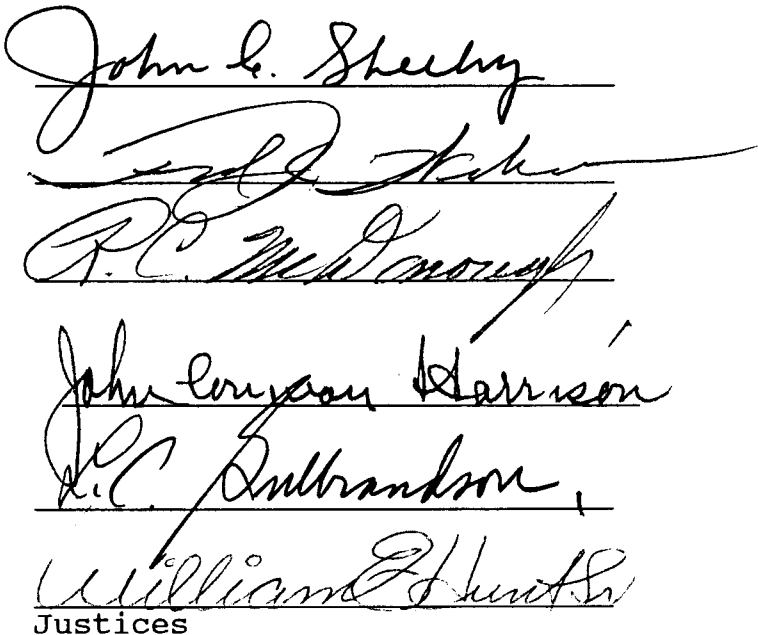 John C. Sheehy
R. C. McDonough
John Conway Harrison
L. C. Gulbrandson,
William E Hunt Sr
Justices